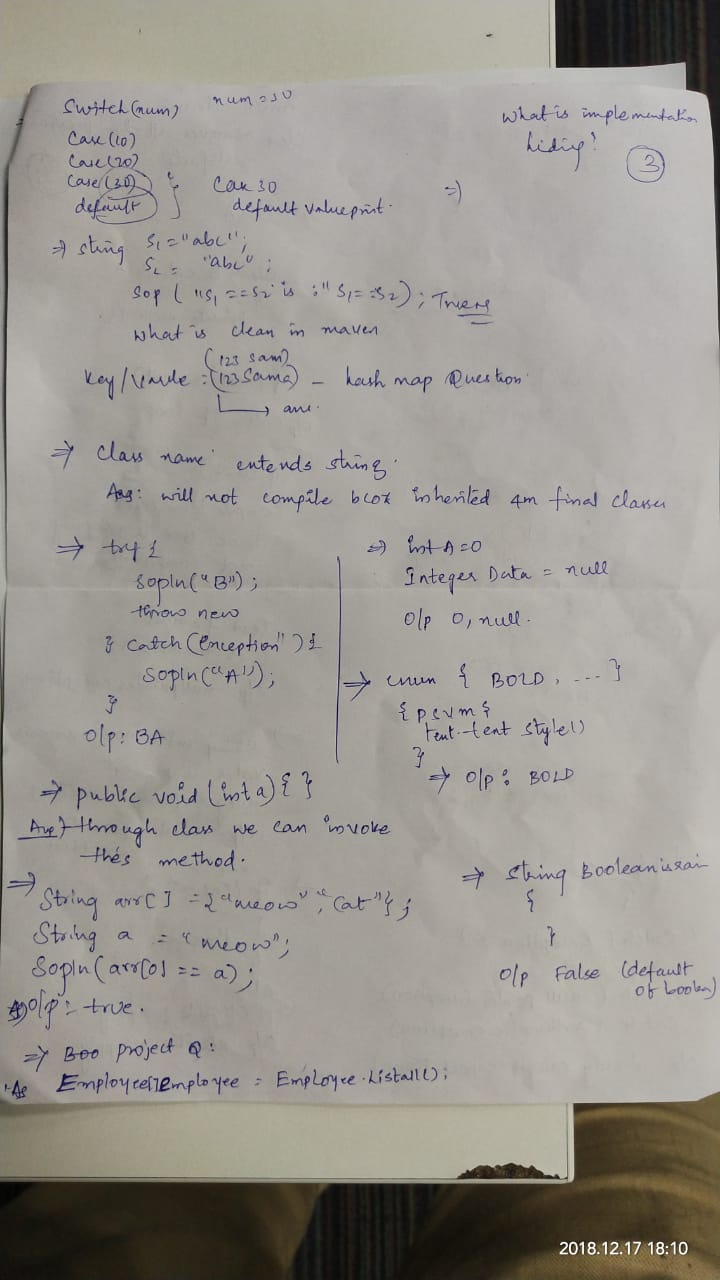 Switch(num) num=30
Case(10)
Case(20)
Case(30) } Case 30
default default value print.
what is implementation
hiding?
3
=)
=> string S1 = "abc";
S2 = "abc";
Sop ( "S1 == S2 is :" S1 == S2);
what is clean in maven
(123 Sam)
Key/Value : (123 Sama) - hash map Question
ans.
=> Class name extends string.
Ans: will not compile bcoz inherited 4m final classes
=> try {
Sopln("B");
throw new
} catch (Exception") {
Sopln("A");
}
o/p: BA
=> int A = 0
Integer Data = null
o/p 0, null.
=> enum { BOLD, ... }
{ psvm {
text.text style()
}
=> o/p: BOLD
=> public void (int a) { }
Ans) through class we can invoke
this method.
=>
String arr[] = {"meow", "Cat"};
String a = "meow";
Sopln(arr[0] == a);
o/p: true.
=> string Boolean israi
{
}
o/p False (default
of boolen)
=> Boo project Q:
As Employee[] Employee = Employee.Listall();
2018.12.17 18:10